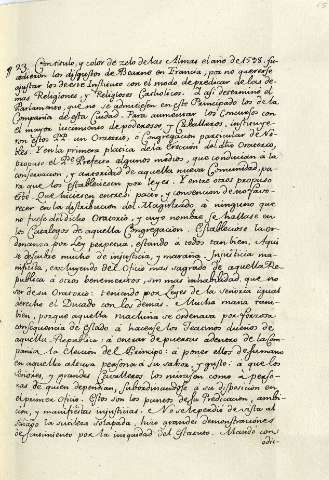 23. Con titulo, y color de zelo de las Almas el año de 1598. su-
cedieron los disgustos de Bearne en Francia, por no quererse
ajustar los de este Instituto con el modo de predicar de las de-
mas Religiones, y Religiosos Catholicos. I assi determinó el
Parlamento, que no se admitiessen en este Principado los de la
Compañia de esta Ciudad. Para aumentar los Consejos con
el mayor incremento de poderosos, y Caballeros, instituye-
ron estos PP. un Oratorio, o Congregacion particular de No-
bles. Y en la primera platica de la Ereccion del dho Oratorio,
propuso el Pe. Prefecto algunos medios, que conducian a la
conservacion, y autoridad de aquella nueva Comunidad, pa-
ra que los estableciessen por leyes. Y entre otros propuso
este. Que hiciessen entre si pacto, y convencion de no favo-
recer en la distribucion del Magistrado a ninguno que
no fuesse del dicho Oratorio, y cuyo nombre se hallasse en
los Catalogos de aquella Congregacion. Establecióse la or-
denanza por Ley perpetua, estando á todos tan bien. Aqui
se descubre mucho de injusticia, y maraña. Injusticia ma-
nifiesta, excluyendo del Oficio mas sagrado de aquella Re-
publica á otros benemeritos, sin mas inhabilidad, que no
ser de su Oratorio: teniendo por Leyes de la Señoria igual
derecho el Ducado con los demas. Mucha maña tam-
bien, porque aquella machina se ordenaba por forzosa
consequencia de Estado á hacerse los Teatinos dueños de
aquella Republica: á entrar de puertas adentro de la Com-
pañia la eleccion del Principe: á poner ellos de su mano
en aquella alteza persona á su sabor, y gusto: á que los
Señores, y grandes Caballeros los mirassen como a perso-
nas de quien dependian, subordinandose á su disposicion en
el primer oficio. Estos son los puntos de su Predicacion, ambi-
cion, y manifiestas injusticias. No se les perdio de vista al
Senado la sutileza solapada, hizo grandes demonstraciones
de sentimiento por la iniquidad del Estatuto. Mandó con